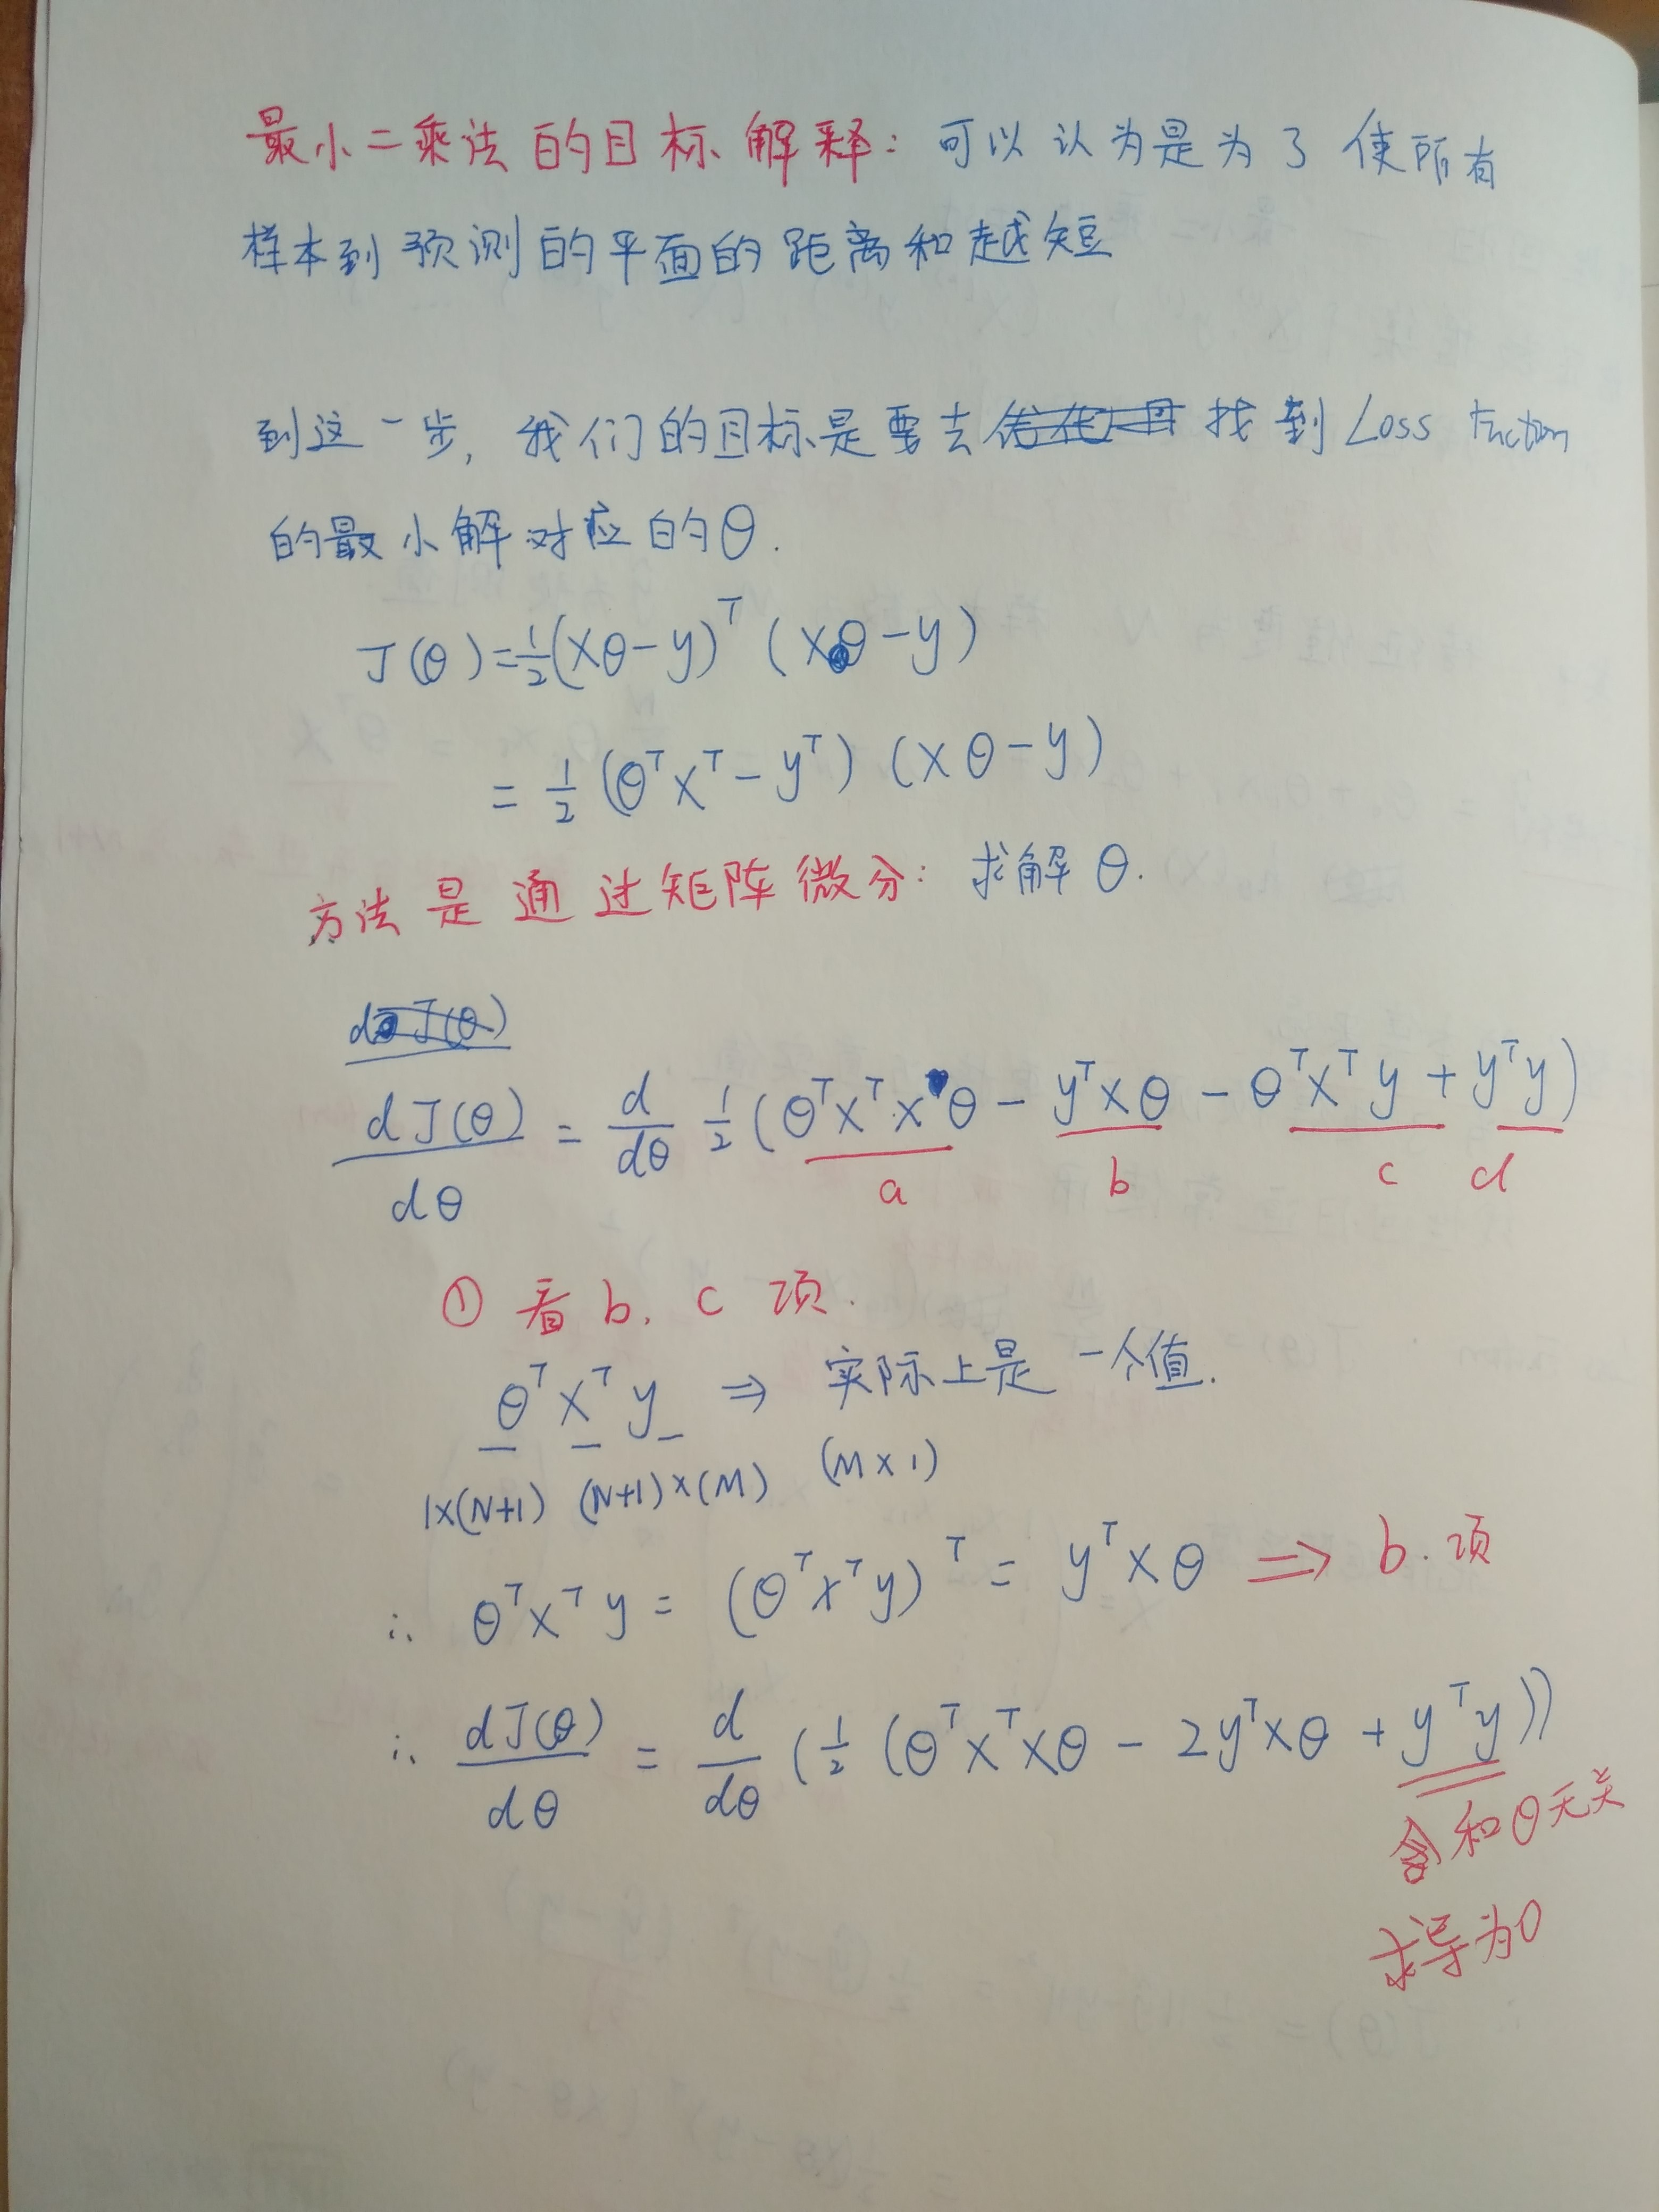 最小二乘法的目标解释：可以认为是为了使所有
样本到预测的平面的距离和越短
到这一步，我们的目标是要去找到Loss Fuction
的最小解对应的θ.
J(θ)=½(Xθ-y)ᵀ(Xθ-y)
=½(θᵀXᵀ-yᵀ)(Xθ-y)
方法是通过矩阵微分：求解θ.
dJ(θ)/dθ = d/dθ ½(θᵀXᵀXθ - yᵀXθ - θᵀXᵀy + yᵀy)
a b c d
① 看b, c项.
θᵀXᵀy ⇒ 实际上是一个值.
1×(N+1) (N+1)×(M) (M×1)
∴ θᵀXᵀy = (θᵀXᵀy)ᵀ = yᵀXθ ⇒ b.项
∴ dJ(θ)/dθ = d/dθ (½(θᵀXᵀXθ - 2yᵀXθ + yᵀy))
和θ无关
求导为0